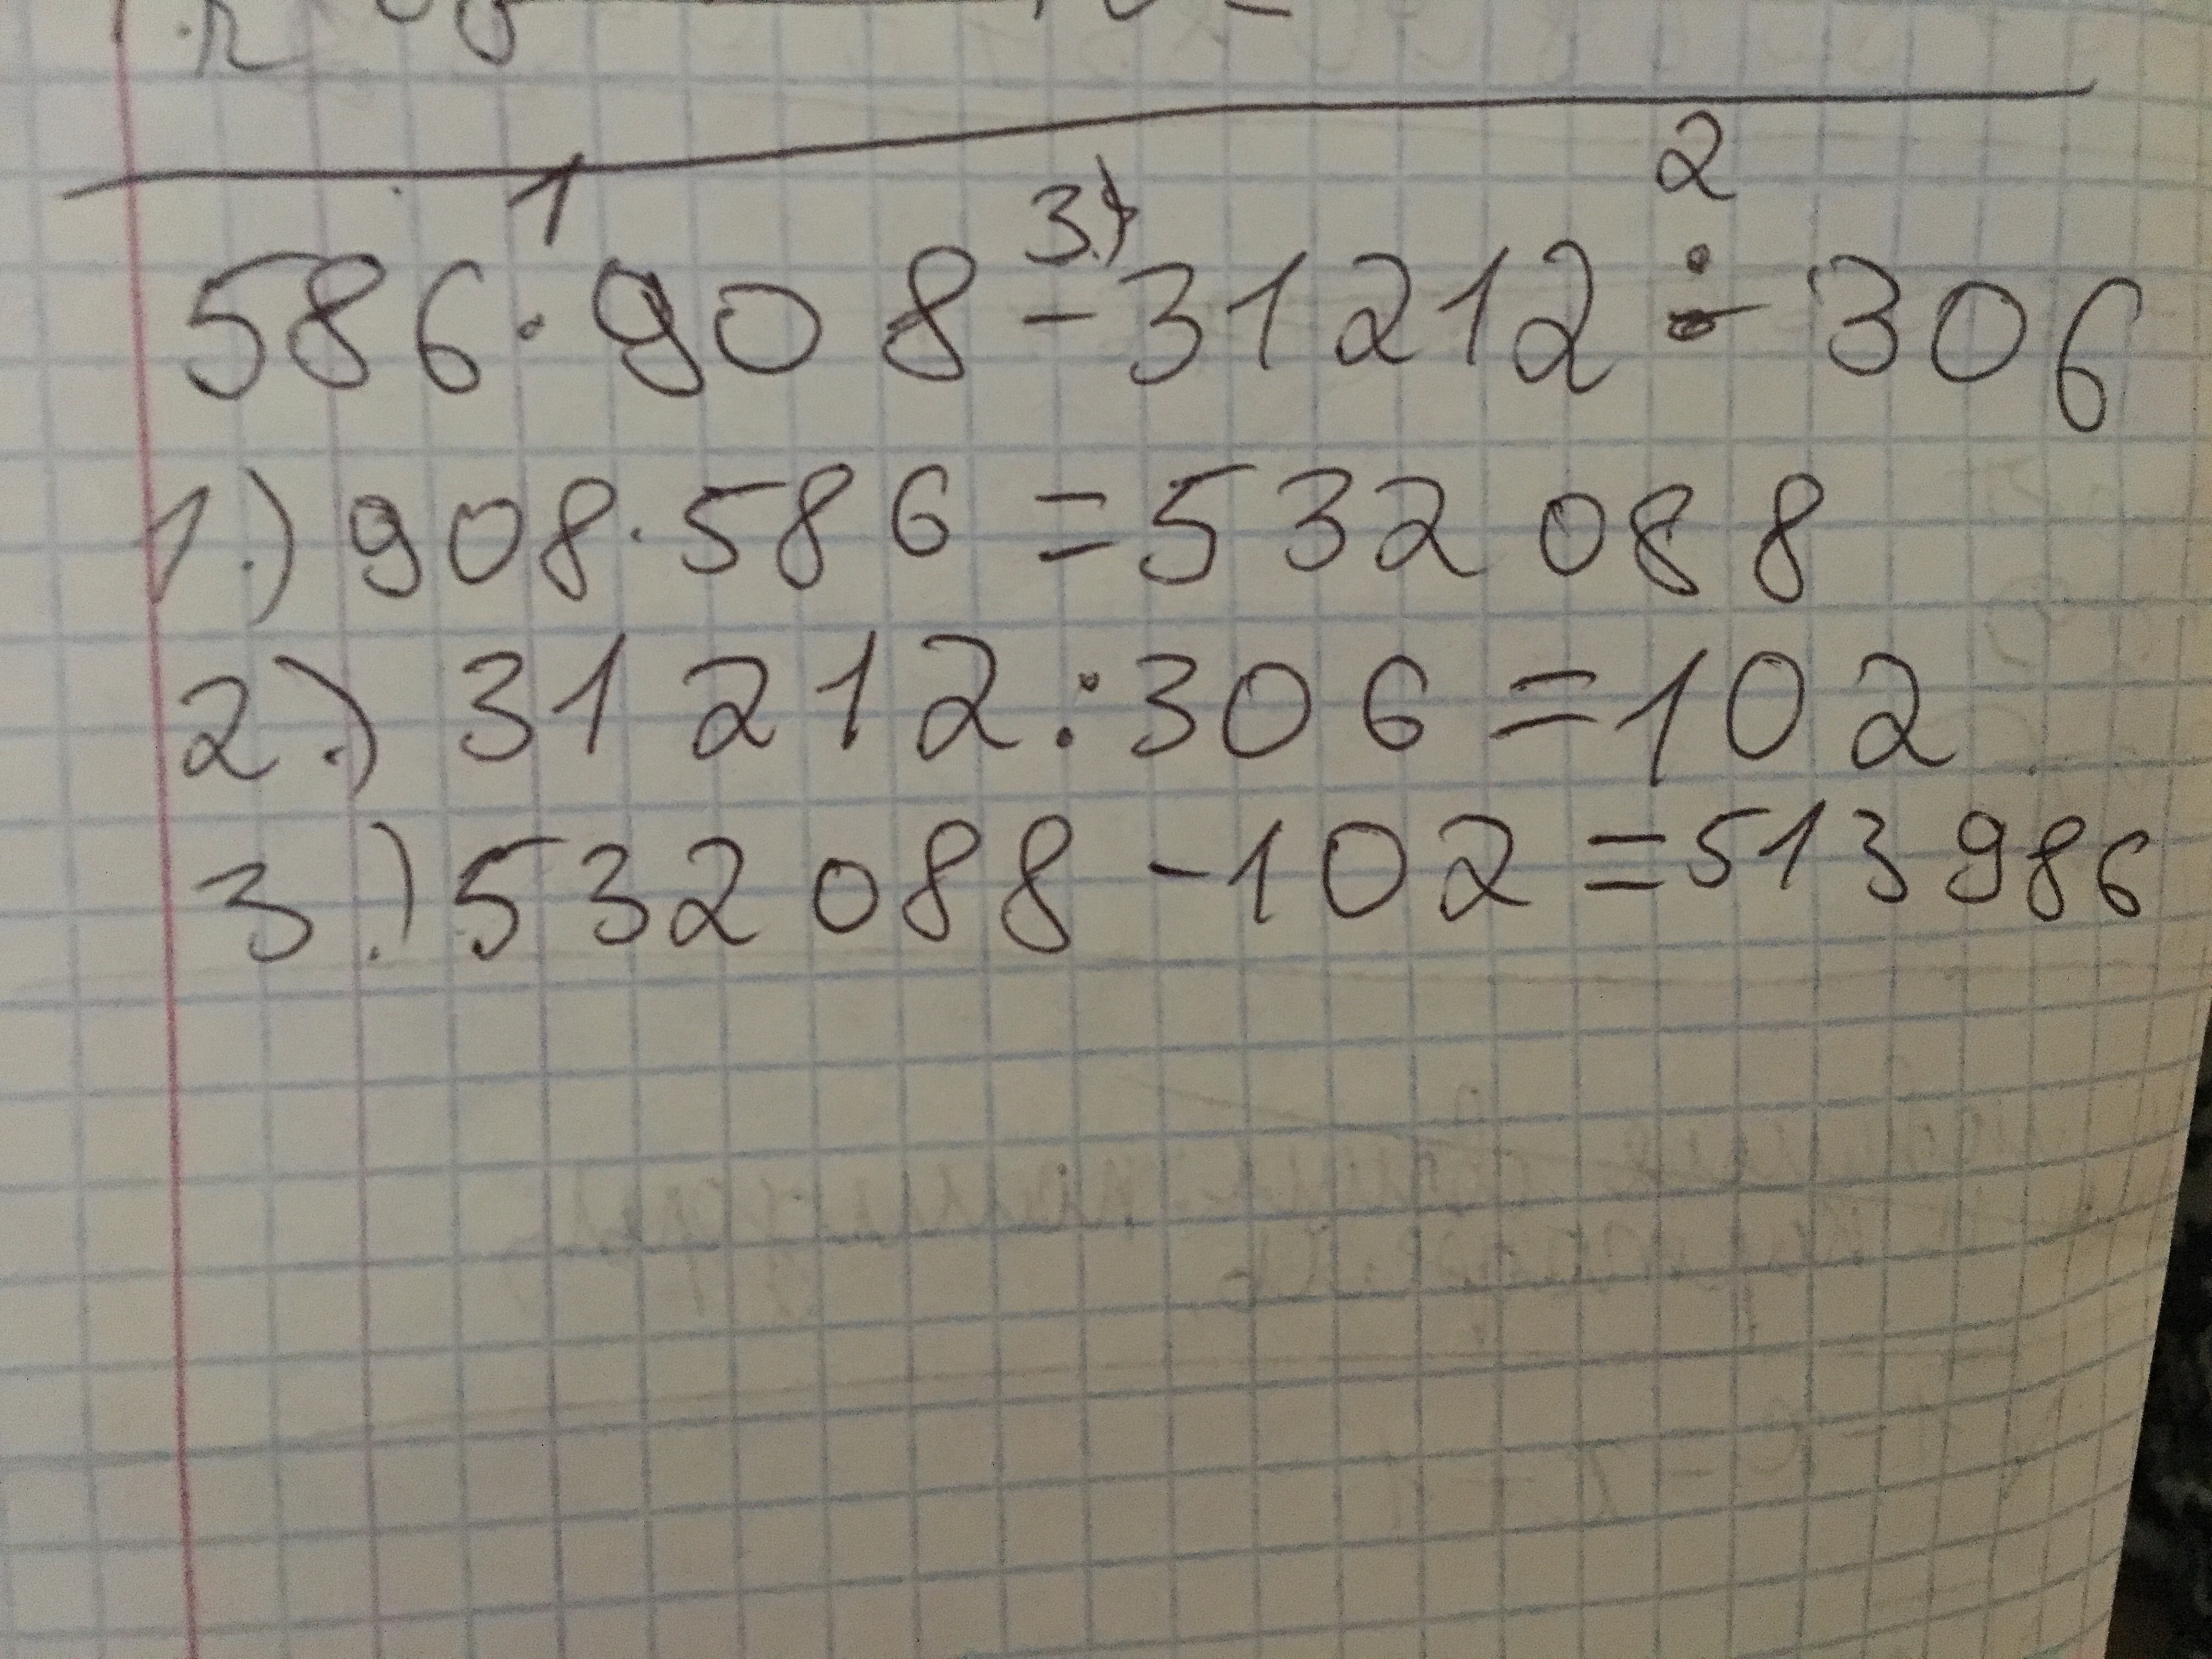 1 3.) 2
586·908-31212÷306
1.) 908·586=532088
2.) 31212:306=102
3.) 532088-102=513986